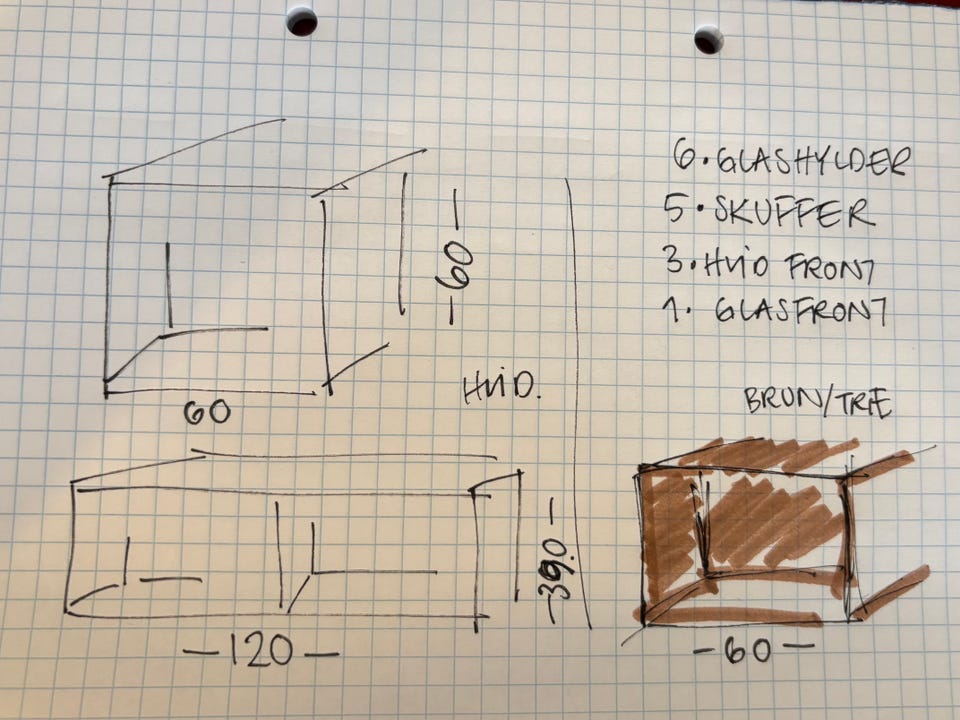 -60-
60
HViD.
-120-
-39.0-
6. GLASHYLDER
5. SKUFFER
3. HViD FRONT
1. GLASFRONT
BRUN/TRÆ
-60-